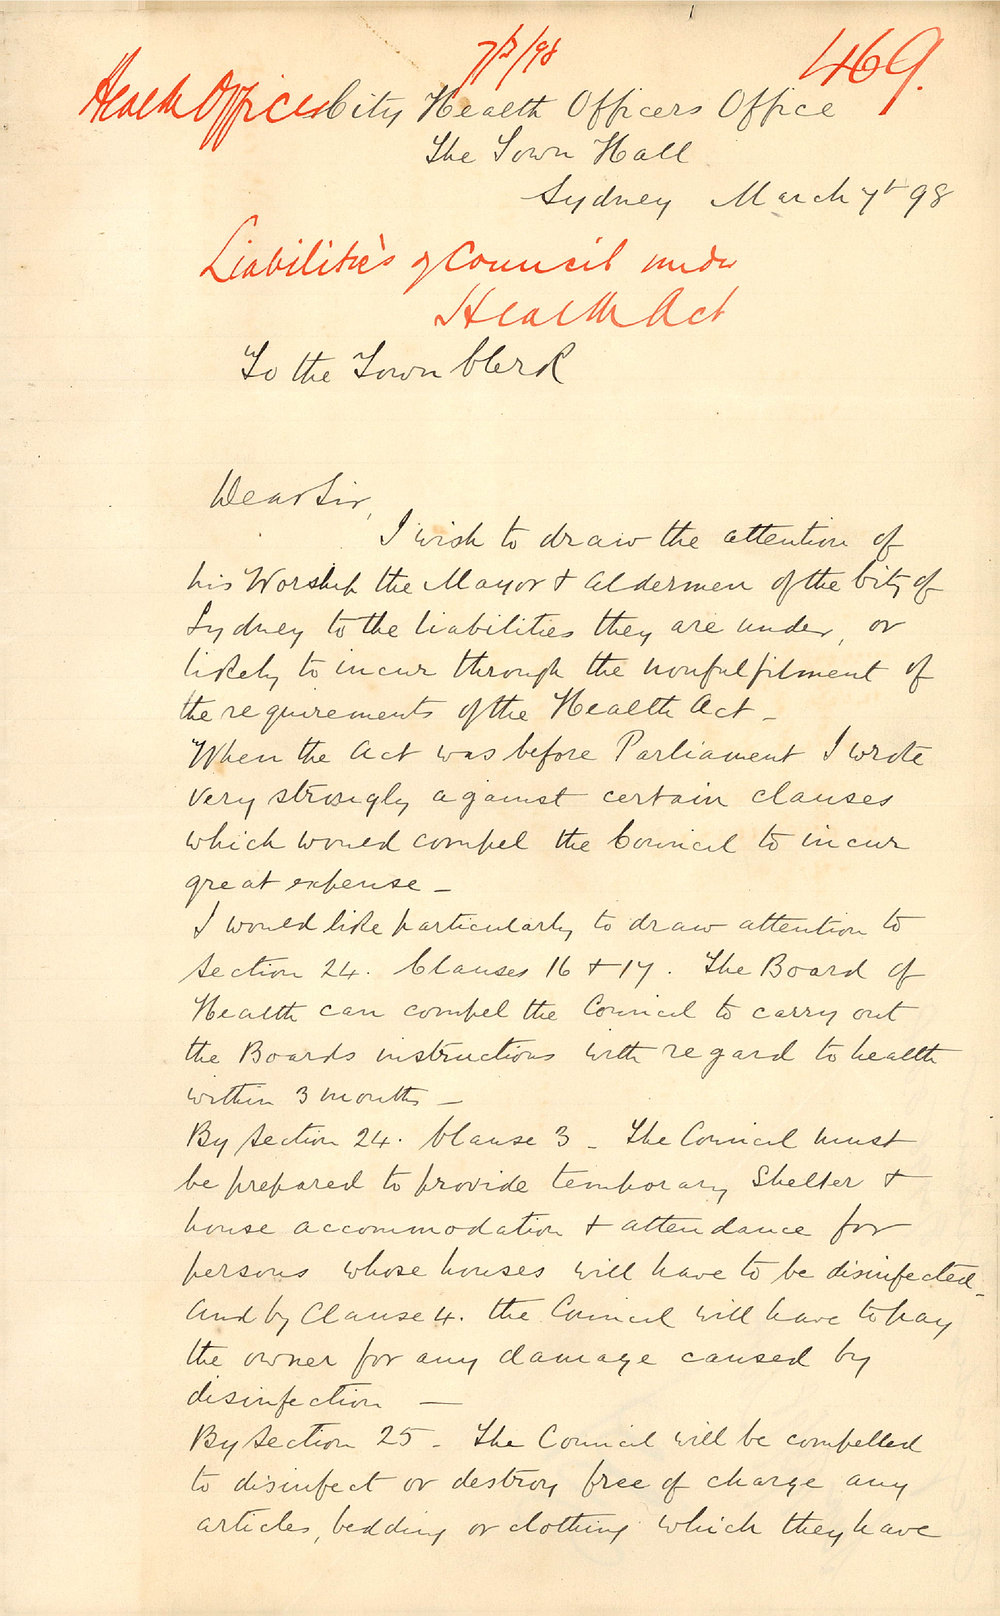 7/3/98
469.
Health Officer
City Health Officers Office
The Town Hall
Sydney March 7th 98
Liabilities of Council under
Health Act
To the Town Clerk
Dear Sir,
I wish to draw the attention of
his Worship the Mayor & Aldermen of the City of
Sydney to the liabilities they are under, or
likely to incur through the nonfulfilment of
the requirements of the Health Act –
When the Act was before Parliament I wrote
very strongly against certain clauses
which would compel the Council to incur
great expense –
I would like particularly to draw attention to
section 24. Clauses 16 & 17. The Board of
Health can compel the Council to carry out
the Boards instructions with regard to health
within 3 months –
By Section 24. Clause 3 – The Council must
be prepared to provide temporary Shelter &
house accommodation & attendance for
persons whose houses will have to be disinfected –
And by Clause 4. the Council will have to pay
the owner for any damage caused by
disinfection –
By Section 25 – The Council will be compelled
to disinfect or destroy free of charge any
articles, bedding or clothing which they have